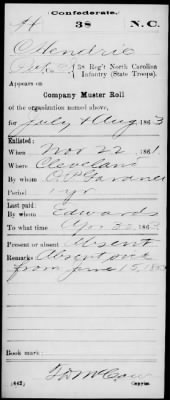 Confederate.
H 38 N. C.
O Hendric
38 Reg't North Carolina
Infantry (State Troops).
Appears on
Company Muster Roll
of the organization named above,
for July & Aug, 1863
Enlisted:
When Nov 22, 1861
Where Cleveland
By whom Gardner
Period 1 yr
Last paid:
By whom Edwards
To what time Apr 1863
Present or absent Absent
Remarks: Absent since
from June 15, 1863
Book mark:
(642) Copyist.